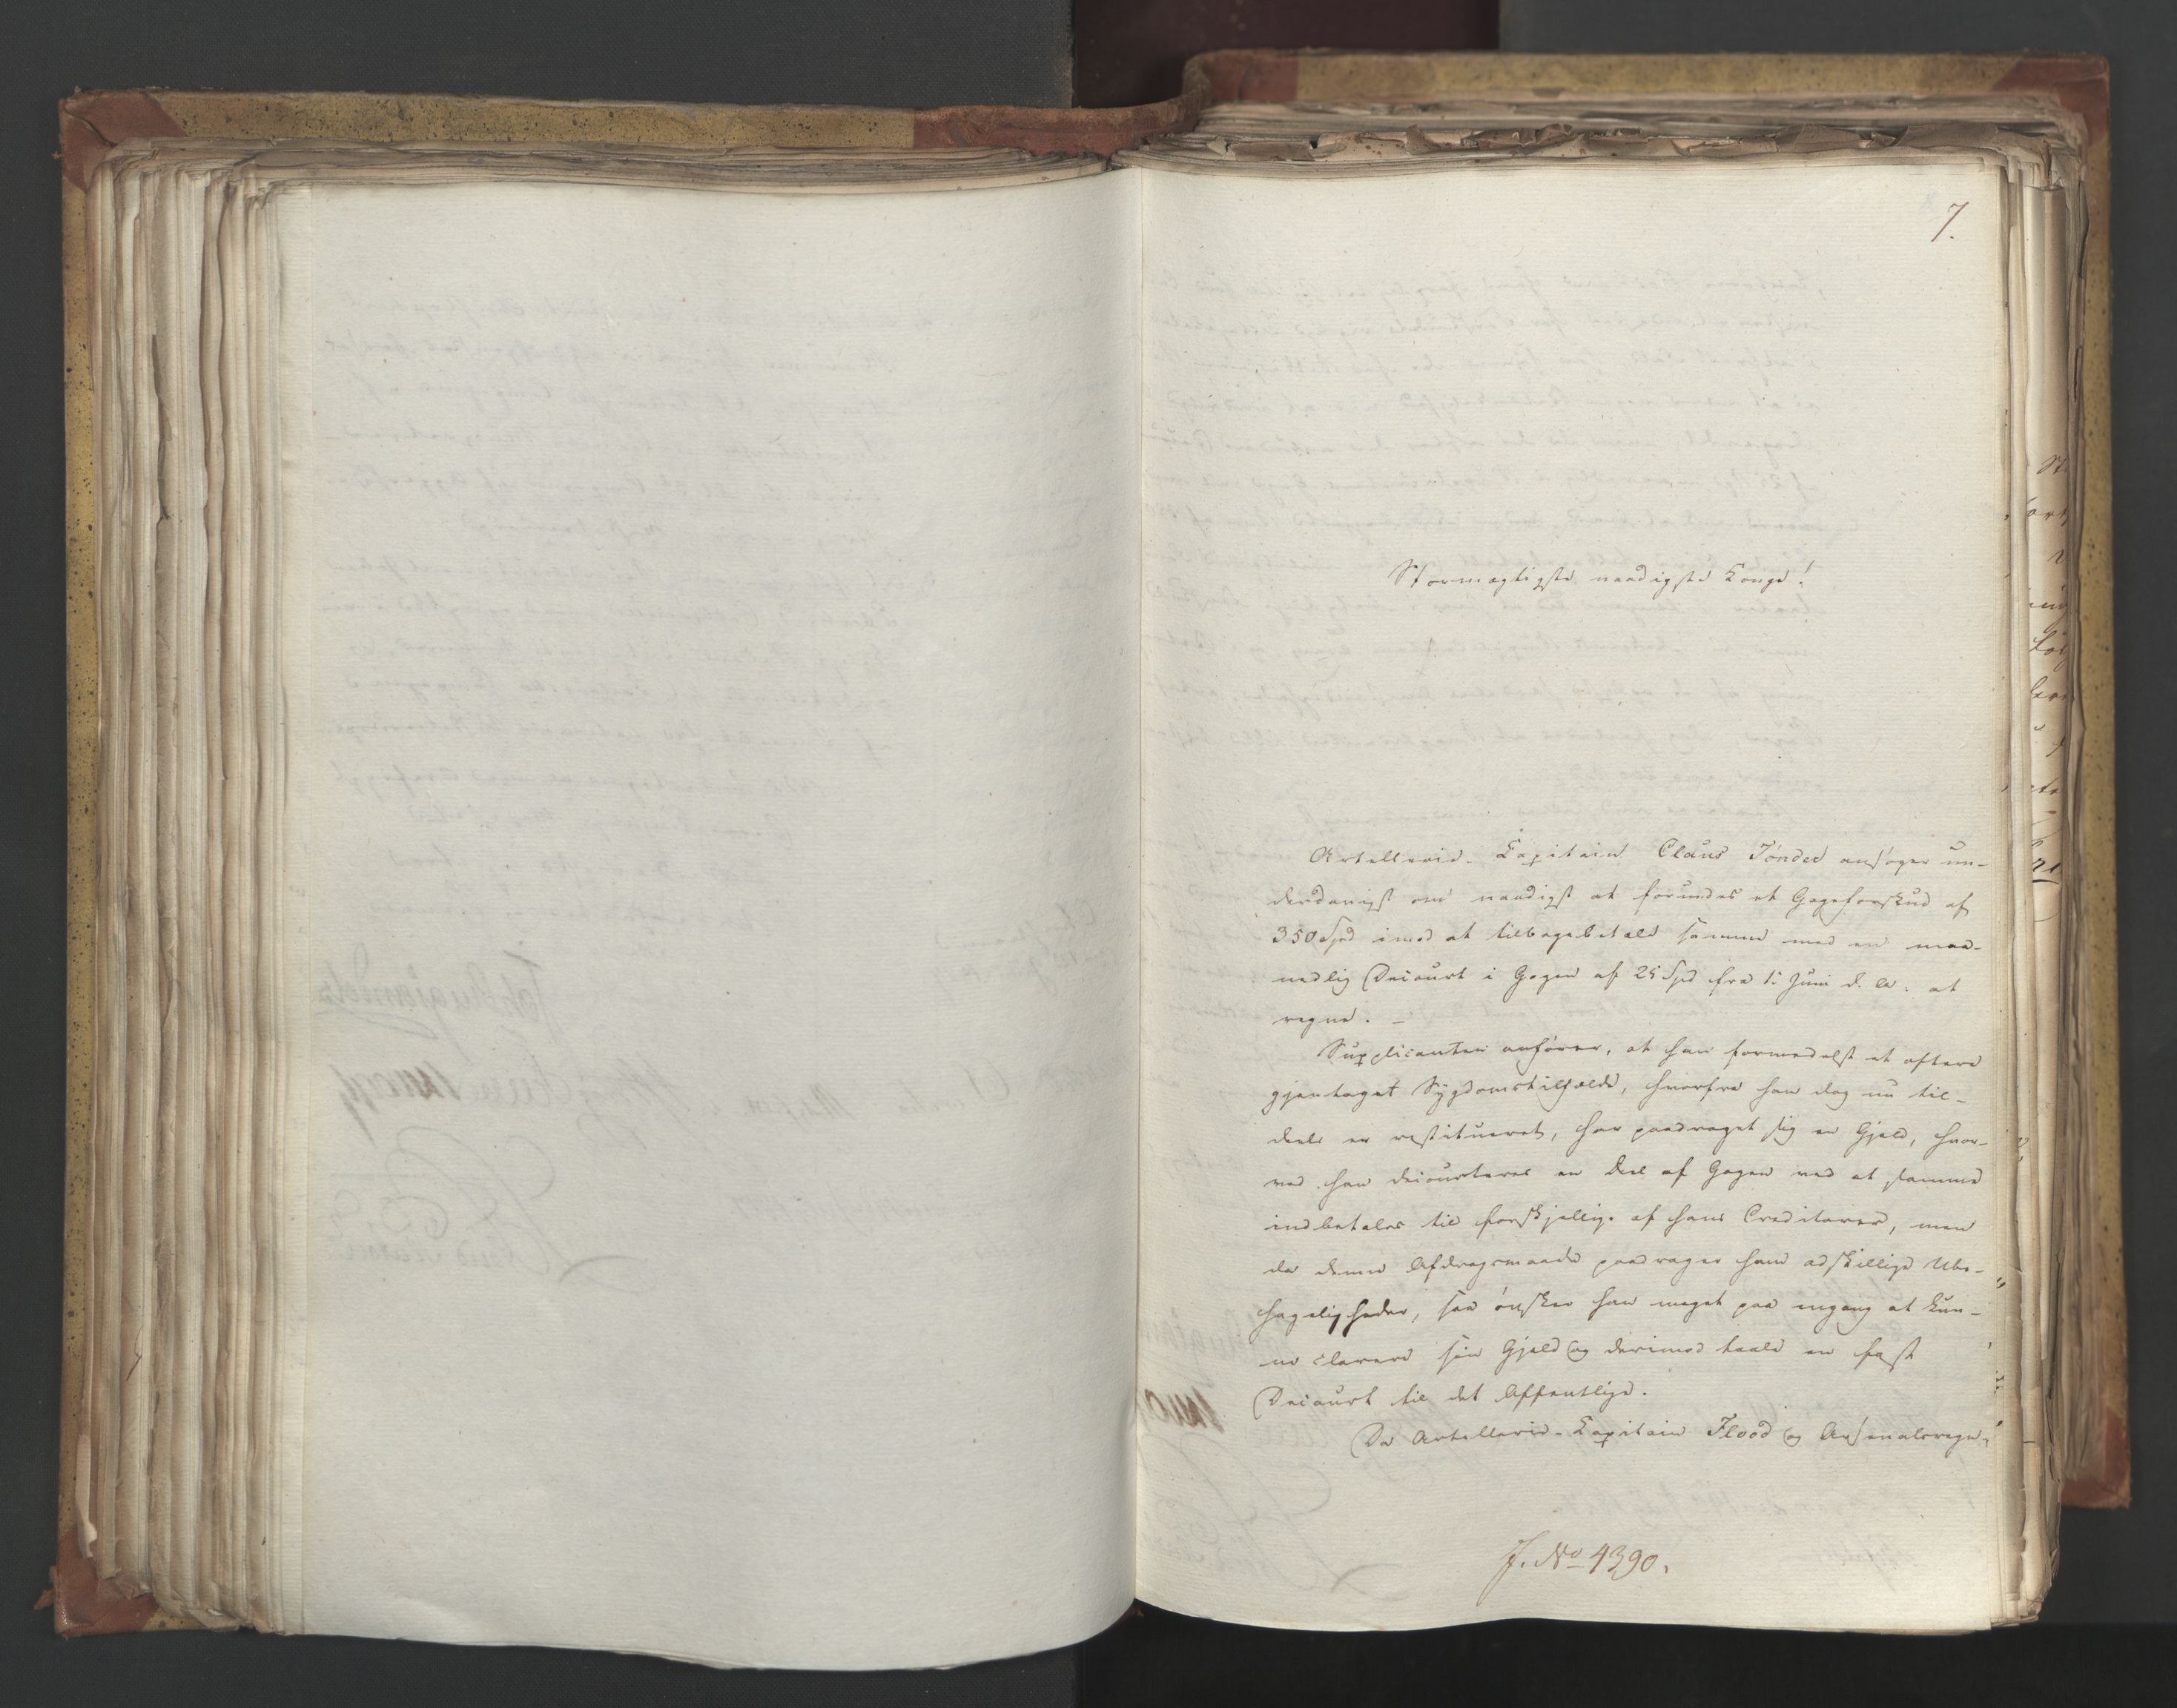 7.
Stormægtigste naadigste Konge!
Artellerie-Kapitain Claus Tönder ansøger un-
derdanigst om naadigst at forundes et Gageforskud af
350 Spd imod at tilbagebetale samme med en maa-
nedlig Decourt i Gagen af 25 Spd fra 1. Juni d. A. at
regne. –
Supplicanten anfører, at han formedelst et oftere
gjentaget Sygdomstilfælde, hvorfra han dog nu til-
deels er restitueret, har paadraget sig en Gjeld, hvor-
ved han decourteres en Deel af Gagen ved at samme
indbetales til forskjellige af hans Creditorer, men
da denne Afdragsmaade paadrager ham adskillige Ube-
hageligheder, saa ønsker han meget paa engang at kun-
ne clarere sin Gjeld og derimod taale en fast
Decourt til det Offentlige.
Da Artellerie-Kapitain Flood og Arsenalsregn-
J. No 4390.